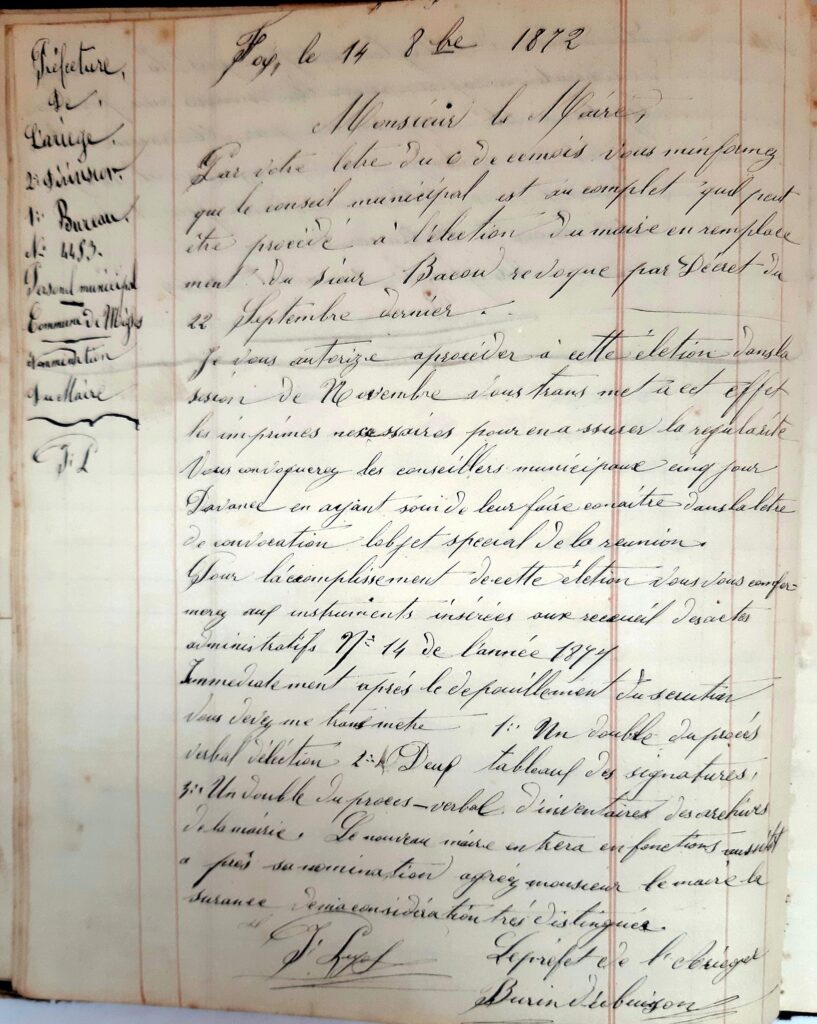 Préfecture,
de
L'ariège.
2e division.
1er Bureau.
No 4453.
Personel municipal
Commune de
Nomination
du Maire
Foix, le 14 8bre 1872
Monsieur le Maire,
Par votre letre du 6 de cemois vous minformez
que le conseil municipal est au complet quil peut
être procédé à l'election du maire en remplace
ment du sieur Bacou revoque par Décret du
22 Septembre dernier.
Je vous autorize aprocéder à cette életion dansla
sesion de Novembre vous trans met à cet effet
les imprimes necessaires pour en assurer la regularite
Vous convoquerez les conseillers municipaux cinq jour
Davance en ayant soin de leur faire conaître dans la letre
de convocation lobjet special de la reunion.
Pour lacomplissement decette életion vous vous confor-
merez aux instruments insérées aux recueil desactes
administratifs No 14 de l'année 1877
Immediatement aprés le depouillement du scrutin
vous devez me transmetre 1o Un double du procés
verbal délection 2o Deux tableaux des signatures,
3o Un double du proces-verbal d'inventaires des archives
de la mairie. Le nouveau maire entrera en fonctions aussitot
a prés sa nomination agréez monsieur le maire la
surance demaconsidération trés distinguée.
Le préfet de l'Ariège
Burin dubuisson